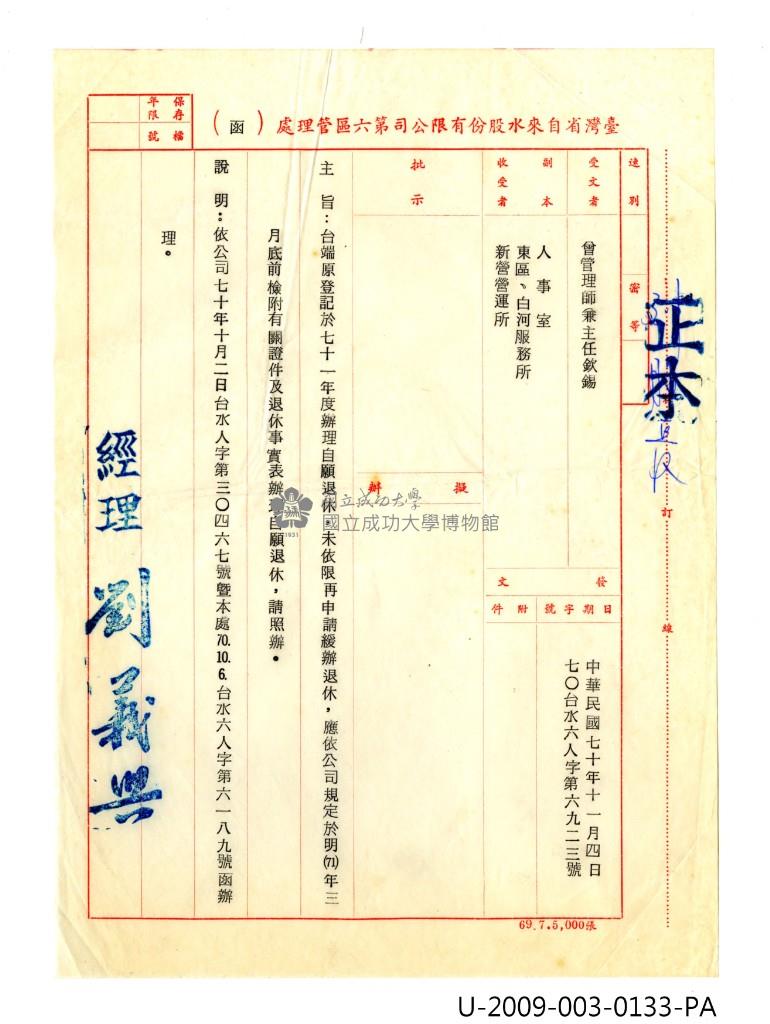 臺灣省自來水股份有限公司第六區管理處（函）
保存年限
檔號
速別
密等
受文者
曾管理師兼主任欽錫
副本收受者
人事室
東區、白河服務所
新營營運所
發文
日期
字號
附件
中華民國七十年十一月四日
七〇台水六人字第六九二三號
批示
擬辦
主旨：台端原登記於七十一年度辦理自願退休，未依限再申請緩辦退休，應依公司規定於明(71)年三
月底前檢附有關證件及退休事實表辦理自願退休，請照辦。
說明：依公司七十年十月二日台水人字第三〇四六七號暨本處70.10.6.台水六人字第六一八九號函辦
理。
經理 劉義興
正本
訂
線
69.7.5,000張
國立成功大學
國立成功大學博物館
1931
U-2009-003-0133-PA